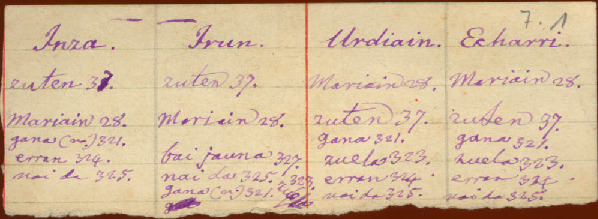 7. 1
Inza. Irun. Urdiain. Echarri.
zuten 37. zuten 37. Mariain 28. Mariain 28.
Mariain 28. Mariain 28. zuten 37. zuten 37.
gana 321. gana 321. gana 321.
erran 324. bai jauna 327. zuela 323. zuela 323.
nai da 325. nai da 325. 323. erran 324 erran 324
gana (n) 321. nai da 325. nai da 325.